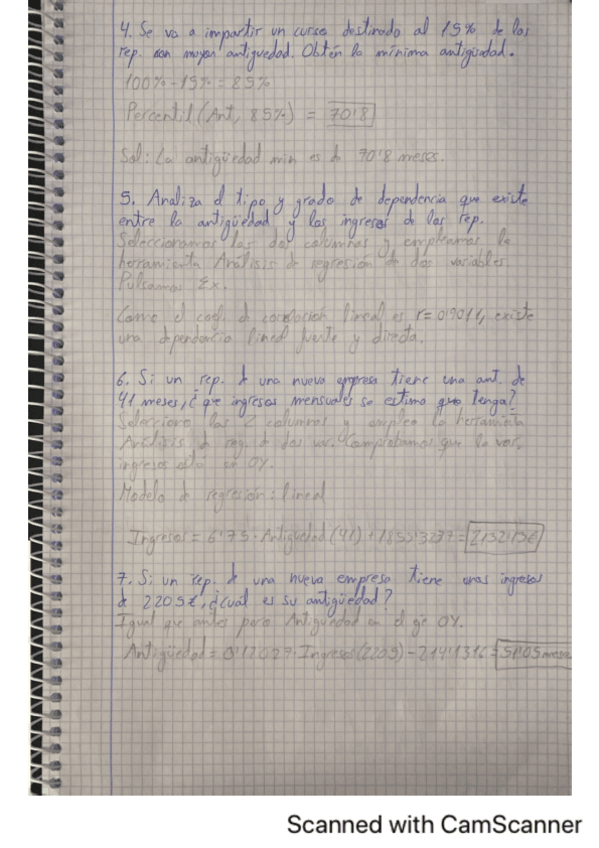 4. Se va a impartir un curso destinado al 15% de los
rep. con mayor antiguedad. Obtén la mínima antigüedad.
100% - 15% = 85%
Percentil (Ant, 85%) = 70'8
Sol: La antigüedad min es de 70'8 meses.
5. Analiza el tipo y grado de dependencia que existe
entre la antigüedad y los ingresos de los rep.
Seleccionamos las dos columnas y empleamos la
herramienta Análisis de regresión de dos variables.
Pulsamos Σx.
Como el coef. de correlación lineal es r = 0'9011, existe
una dependencia lineal fuerte y directa.
6. Si un rep. de una nueva empresa tiene una ant. de
41 meses, ¿que ingresos mensuales se estima que tenga?
Selecciono las 2 columnas y empleo la herramienta
Análisis de reg. de dos var. Comprobamos que la var.
ingresos está en OY.
Modelo de regresión: lineal
Ingresos = 6'75 · Antigüedad (41) + 1855'3237 = 2132'13€
7. Si un rep. de una nueva empresa tiene unos ingresos
de 2205€, ¿cuál es su antigüedad?
Igual que antes pero Antigüedad en el eje OY.
Antigüedad = 0'12029 · Ingresos (2205) - 214'1316 = 51'05 meses
Scanned with CamScanner